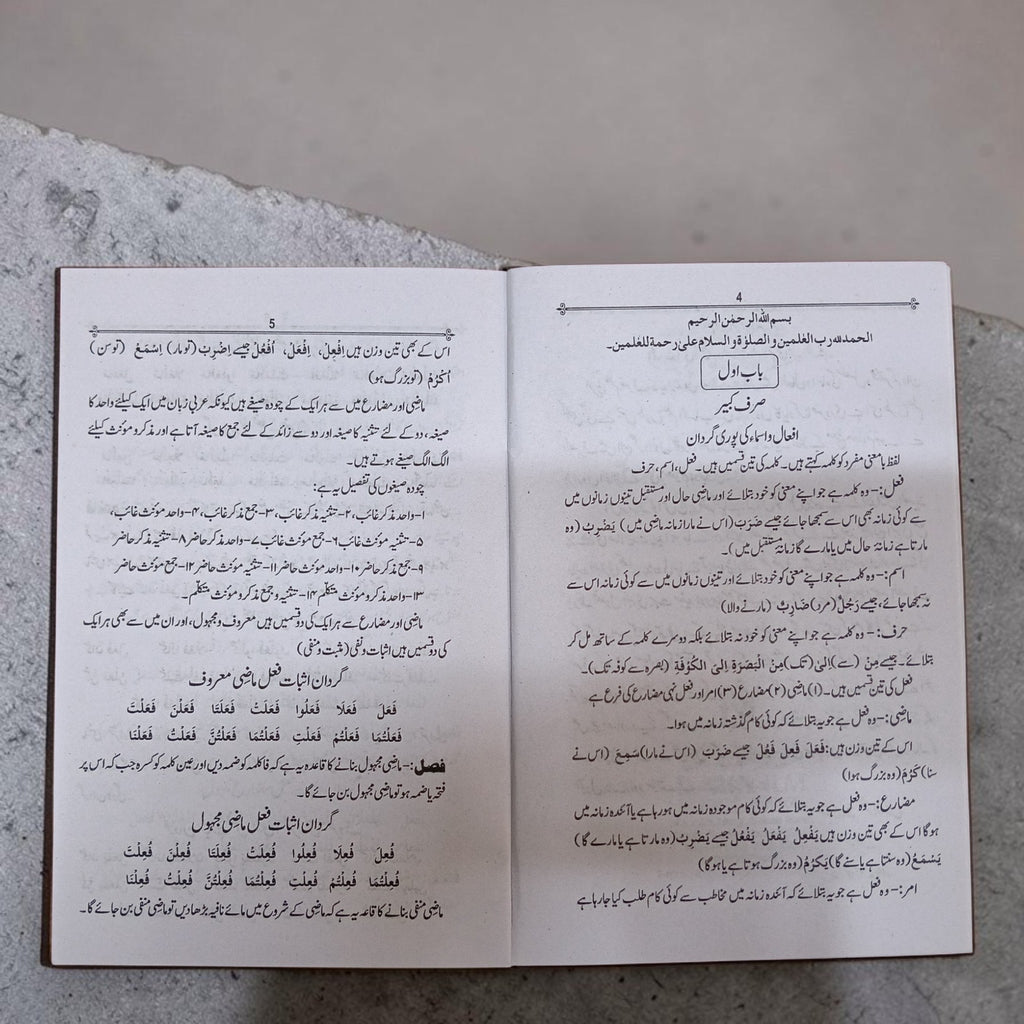 4
بسم اللہ الرحمٰن الرحیم
الحمدللہ رب العٰلمین والصلوٰۃ والسلام علی رحمة للعٰلمین۔
باب اول
صرف کبیر
افعال واسماء کی پوری گردان
لفظ بامعنی مفرد کو کلمہ کہتے ہیں۔ کلمہ کی تین قسمیں ہیں۔ فعل، اسم، حرف
فعل:- وہ کلمہ ہے جو اپنے معنی کو خود بتلائے اور ماضی حال اور مستقبل تینوں زمانوں میں
سے کوئی زمانہ بھی اس سے سمجھا جائے جیسے ضَرَبَ (اس نے مارا زمانہ ماضی میں) یَضْرِبُ (وہ
مارتا ہے زمانۂ حال میں یا مارے گا زمانۂ مستقبل میں)۔
اسم:- وہ کلمہ ہے جو اپنے معنی کو خود بتلائے اور تینوں زمانوں میں سے کوئی زمانہ اس سے
نہ سمجھا جائے، جیسے رَجُلٌ (مرد) ضَارِبٌ (مارنے والا)
حرف:- وہ کلمہ ہے جو اپنے معنی کو خود نہ بتلائے بلکہ دوسرے کلمہ کے ساتھ مل کر
بتلائے۔ جیسے مِنْ (سے) اِلیٰ (تک) مِنَ الْبَصَرَةِ اِلیَ الْکُوْفَةِ (بصرہ سے کوفہ تک)۔
فعل کی تین قسمیں ہیں۔ (۱) ماضی (۲) مضارع (۳) امر اور فعل نہی مضارع کی فرع ہے
ماضی:- وہ فعل ہے جو یہ بتلائے کہ کوئی کام گذشتہ زمانہ میں ہوا۔
اس کے تین وزن ہیں: فَعَلَ فَعِلَ فَعُلَ جیسے ضَرَبَ (اس نے مارا) سَمِعَ (اس نے
سنا) کَرُمَ (وہ بزرگ ہوا)
مضارع:- وہ فعل ہے جو یہ بتلائے کہ کوئی کام موجودہ زمانہ میں ہو رہا ہے یا آئندہ زمانہ میں
ہوگا اس کے بھی تین وزن ہیں یَفْعِلُ یَفْعَلُ یَفْعُلُ جیسے یَضْرِبُ (وہ مارتا ہے یا مارے گا)
یَسْمَعُ (وہ سنتا ہے یا سنے گا) یَکْرُمُ (وہ بزرگ ہوتا ہے یا ہوگا)
امر:- وہ فعل ہے جو یہ بتلائے کہ آئندہ زمانہ میں مخاطب سے کوئی کام طلب کیا جارہا ہے
5
اس کے بھی تین وزن ہیں اِفْعِلْ، اِفْعَلْ، اُفْعُلْ جیسے اِضْرِبْ (تو مار) اِسْمَعْ (تو سن)
اُکْرُمْ (تو بزرگ ہو)
ماضی اور مضارع میں سے ہر ایک کے چودہ صیغے ہیں کیونکہ عربی زبان میں ایک کیلئے واحد کا
صیغہ، دو کے لئے تثنیہ کا صیغہ اور دو سے زائد کے لئے جمع کا صیغہ آتا ہے اور مذکر و مؤنث کیلئے
الگ الگ صیغے ہوتے ہیں۔
چودہ صیغوں کی تفصیل یہ ہے:
۱- واحد مذکر غائب، ۲- تثنیہ مذکر غائب، ۳- جمع مذکر غائب، ۴- واحد مؤنث غائب،
۵- تثنیہ مؤنث غائب ۶- جمع مؤنث غائب ۷- واحد مذکر حاضر ۸- تثنیہ مذکر حاضر
۹- جمع مذکر حاضر ۱۰- واحد مؤنث حاضر ۱۱- تثنیہ مؤنث حاضر ۱۲- جمع مؤنث حاضر
۱۳- واحد مذکر و مؤنث متکلم ۱۴- تثنیہ و جمع مذکر و مؤنث متکلم۔
ماضی اور مضارع سے ہر ایک کی دو قسمیں ہیں معروف و مجہول، اور ان میں سے بھی ہر ایک
کی دو قسمیں ہیں اثبات و نفی (مثبت و منفی)
گردان اثبات فعل ماضی معروف
فَعَلَ فَعَلَا فَعَلُوا فَعَلَتْ فَعَلَتَا فَعَلْنَ فَعَلْتَ
فَعَلْتُمَا فَعَلْتُمْ فَعَلْتِ فَعَلْتُمَا فَعَلْتُنَّ فَعَلْتُ فَعَلْنَا
فصل:- ماضی مجہول بنانے کا قاعدہ یہ ہے کہ فا کلمہ کو ضمہ دیں اور عین کلمہ کو کسرہ جب کہ اس پر
فتحہ یا ضمہ ہو تو ماضی مجہول بن جائے گا۔
گردان اثبات فعل ماضی مجہول
فُعِلَ فُعِلَا فُعِلُوا فُعِلَتْ فُعِلَتَا فُعِلْنَ فُعِلْتَ
فُعِلْتُمَا فُعِلْتُمْ فُعِلْتِ فُعِلْتُمَا فُعِلْتُنَّ فُعِلْتُ فُعِلْنَا
ماضی منفی بنانے کا قاعدہ یہ ہے کہ ماضی کے شروع میں مائے نافیہ بڑھا دیں تو ماضی منفی بن جائے گا۔